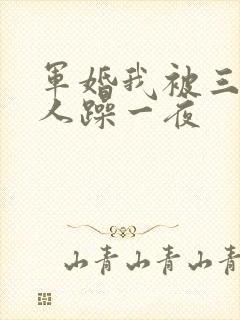 军婚我被三
人躁一夜
山青山青山青